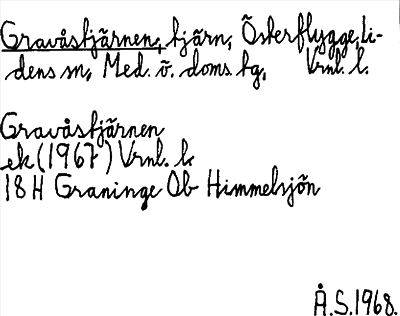 Gravåstjärnen, tjärn, Österflygge, Li-
dens sn, Med. v. doms. tg, Vrnl. l.
Gravåstjärnen
ek (1967) Vrnl. l.
18 H Graninge Ob Himmelsjön
Å.S. 1968.